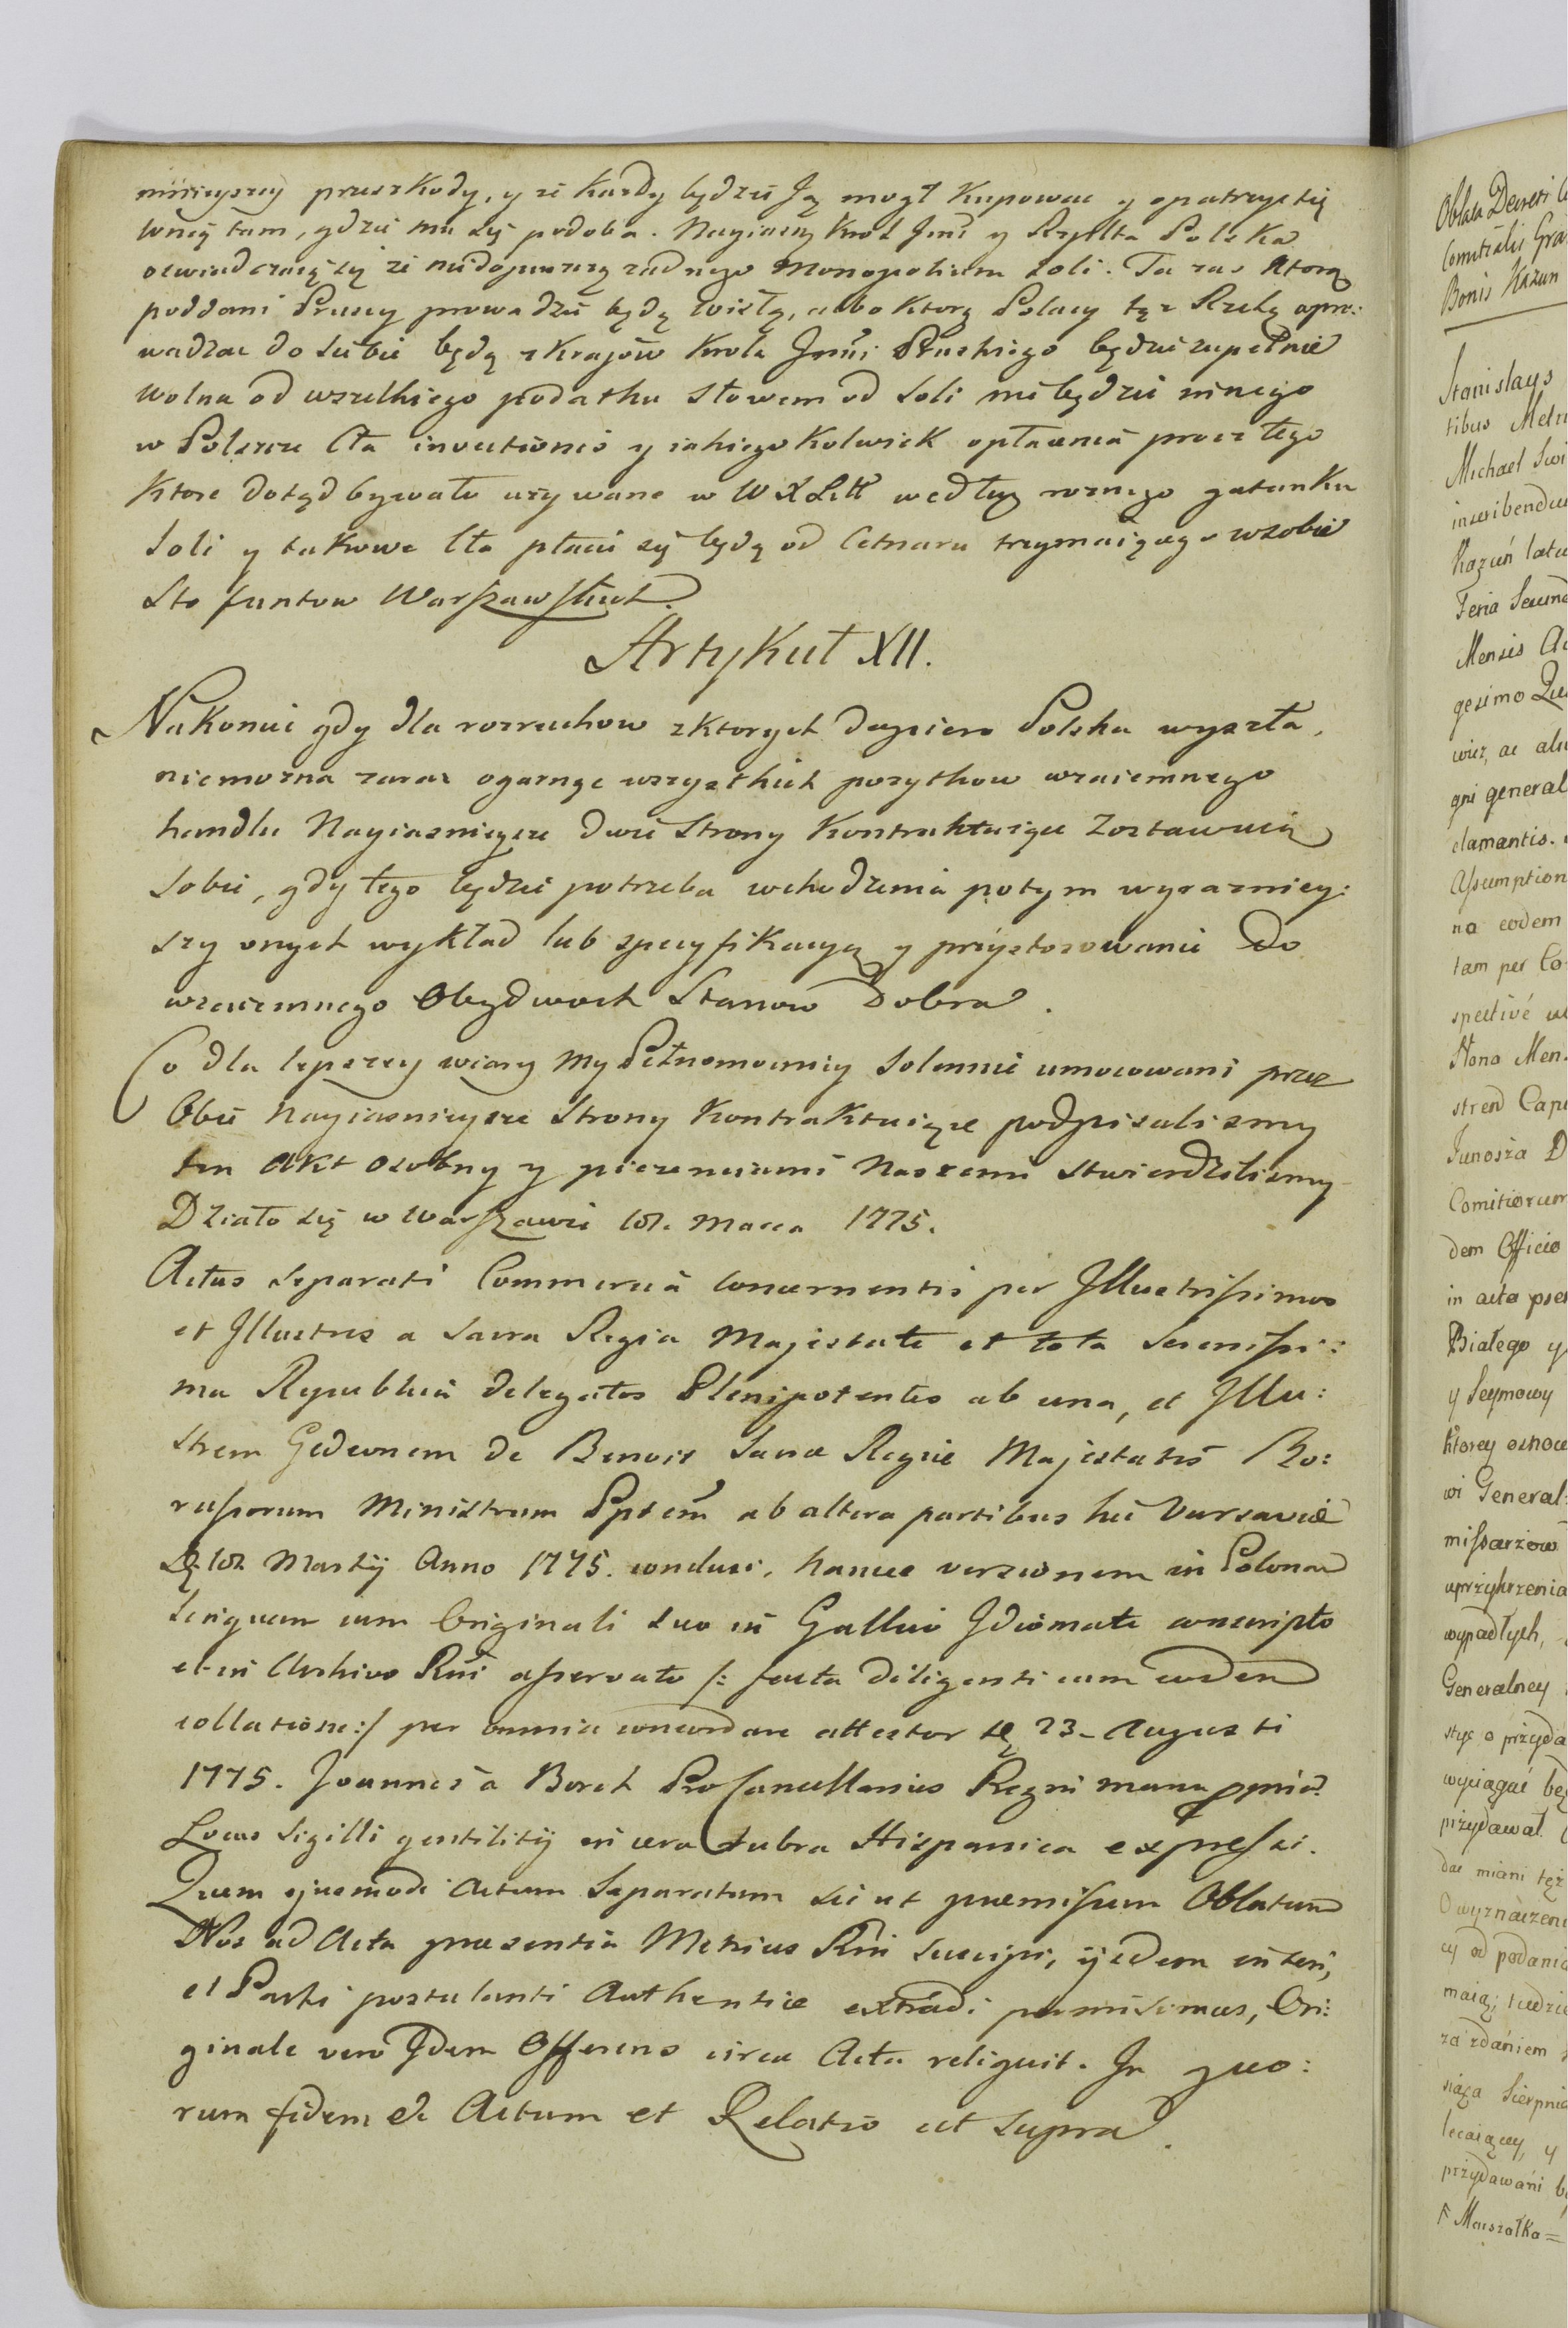 mnieyszey przeszkody, y że każdy będzie Ją mogł kupowac y opatrzyc się
wnię tam, gdzie mu się podoba. Nayiaśn Krol Jmć y Rzplta Polska
oswiadczaią się że niedopuszczą żadnego Monopolium soli. Ta zas ktorą
poddani Pruscy prowadzić będą Wisłą, albo ktorą Polacy tęż Rzeką spro:
wadzac do siebie będą z Kraiów Krola Jmći Pruskiego będzie zupełnie
wolna od wszelkiego podatku słowem od soli nie będzie innego
w Polszcze Cła invectionis y iakiegokolwiek opłacenia procz tego
ktore dotąd bywało używane w W X Litt według rożnego gatunku
soli y takowe Cło płacić się będą od Cetnaru trzymaiącego wsobie
sto funtow Warszawskich.
Artykuł XII.
Nakoniec gdy dla rozruchow zktorych dopiero Polska wyszła,
niemożna zaraz ogarnąc wszystkich pożytkow wzaiemnego
handlu Nayiasnieysze dwie Strony Kontraktuiące zostawuią
sobie, gdy tego będzie potrzeba wchodzenia potym wyrazniey:
szy onych wykład lub specyfikacyą y przystosowanie do
wzaiemnego Obydwoch Stanow Dobra.
Co dla lepszey wiary My Pełnomocnicy solennie umocowani przez
Obie Nayiasnieysze Strony Kontraktuiące podpisalismy
ten Akt osobny y pieczenciami Naszemi stwierdzilismy
Działo się w Warszawie 18. Marca 1775.
Actus Separati Commercia concernentis per Illustrissimos
et Illustres a Sacra Regia Majestate et tota Serenissi:
ma Republica delegatos Plenipotentes ab una, et Illu:
strem Gedeonem de Benoit Sacræ Regiæ Majestatis Bo:
russorum Ministrum Pptem ab altera partibus hic Varsaviæ
Die 18. Martij Anno 1775. conclusi, hancce versionem in Polonam
Linguam cum Originali suo in Gallico Idiomate conscripto
et in Archivo Rni asservato /: facta diligenti cum eodem
collatione:/ per omnia concordare attestor die 23 Augusti
1775. Joannes a Borch ProCancellarius Regni manu ppria
Locus Sigilli gentilitij in cera rubra Hispanica expressi.
Quem ejusmodi Actum Separatum sic ut præmissum Oblatum
Nos ad Acta præsentia Metrices Rni suscipi, ijsdem inseri,
et Parti postulanti Authentice extradi permisimus, Ori:
ginale vero Idem Offerens circa Acta reliquit. In quo:
rum fidem etc Actum et Relatio ut supra.
Oblata Decreti
Comitialis
Bonis Kazun
Stanislaus
tibus
Michael
inscribendum
Kazuń
Feria
Mensis
gesimo
wicz, ac
gni general
clamantis.
Assumption
na eodem
tam per
spectivé
Mona
strend
Junosza
Comitiorum
dem Officio
in acta
Białego y
y Seymowy
ktorey osnowa
wi General
missarzow
uprzykrzenia
wypadłych,
Generalney
styc o przyda
wyciągać
przydawał
dac miani też
O wyznaczeni
cy od podania
maią;
za zdaniem
siąca Sierpnia
lecaiącey, y
przydawani
Marszałka =